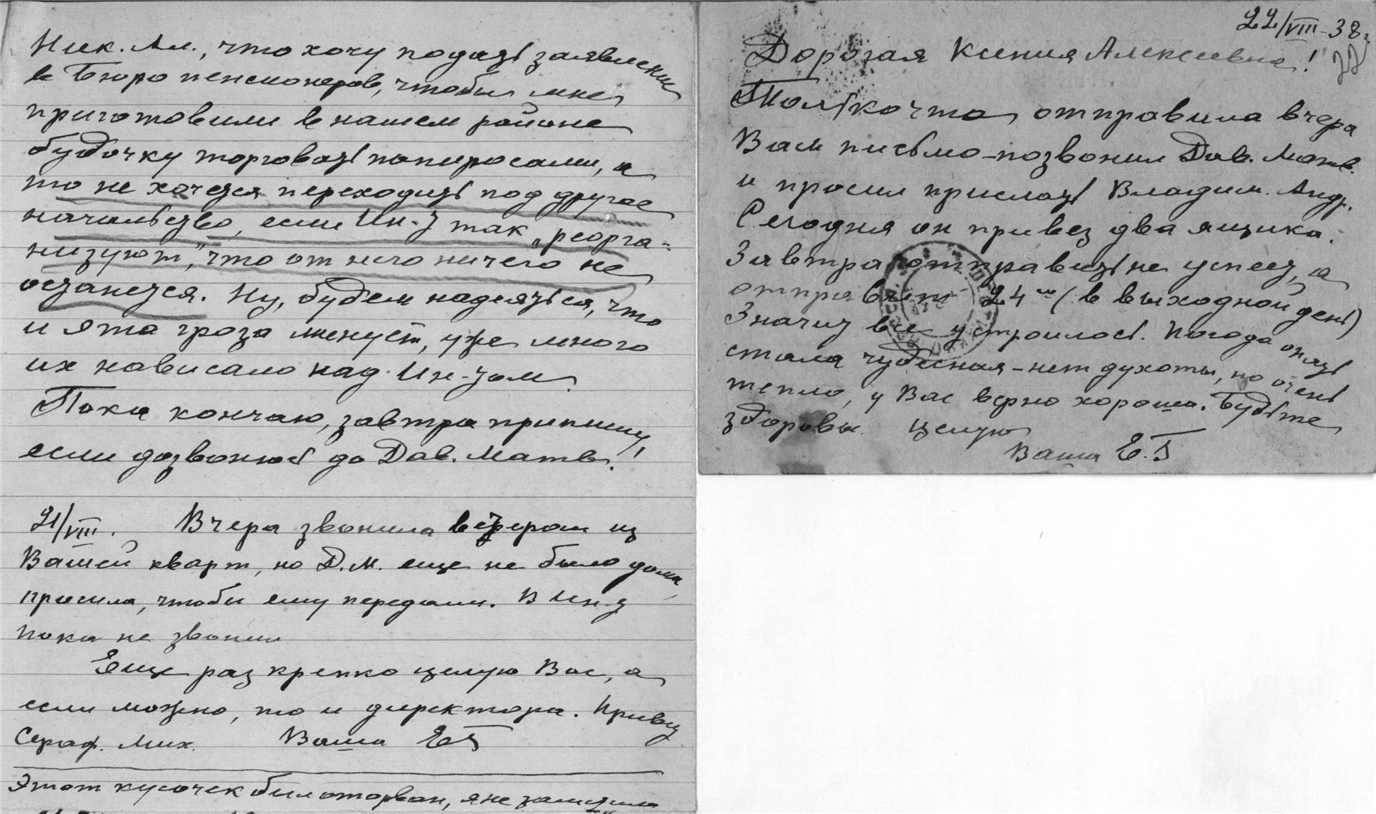 Ник. Ал., что хочу подать заявление
в Бюро пенсионеров, чтобы мне
приготовили в нашем районе
будочку торговать папиросами, а
то не хочется переходить под другое
начальство, если Ин-т так „реорга=
низуют", что от него ничего не
останется. Ну, будем надеяться, что
и эта гроза минует, уже много
их нависало над Ин-том.
Пока кончаю, завтра припишу,
если дозвонюсь до Дав. Матв.!
21/VIII. Вчера звонила вечером из
Вашей кварт., но Д.М. еще не было дома,
просила, чтобы ему передали. В Ин-т
пока не звонил
Еще раз крепко целую Вас, а
если можно, то и директора. Привет
Сераф. Мих. Ваша ЕТ
Этот кусочек был оторван, я не заметила
22/VIII-38г.
22
Дорогая Ксения Алексеевна!
Только что отправила вчера
Вам письмо – позвонил Дав. Матв.
и просил прислать Владим. Андр.
Сегодня он привез два ящика.
Завтра отправить не успеет, а
отправит 24го (в выходной день)
Значит все устроилось. Погода опять
стала чудесная – нет духоты, но очень
тепло, у Вас верно хорошо. Будьте
здоровы. Целую
Ваша Е.Т